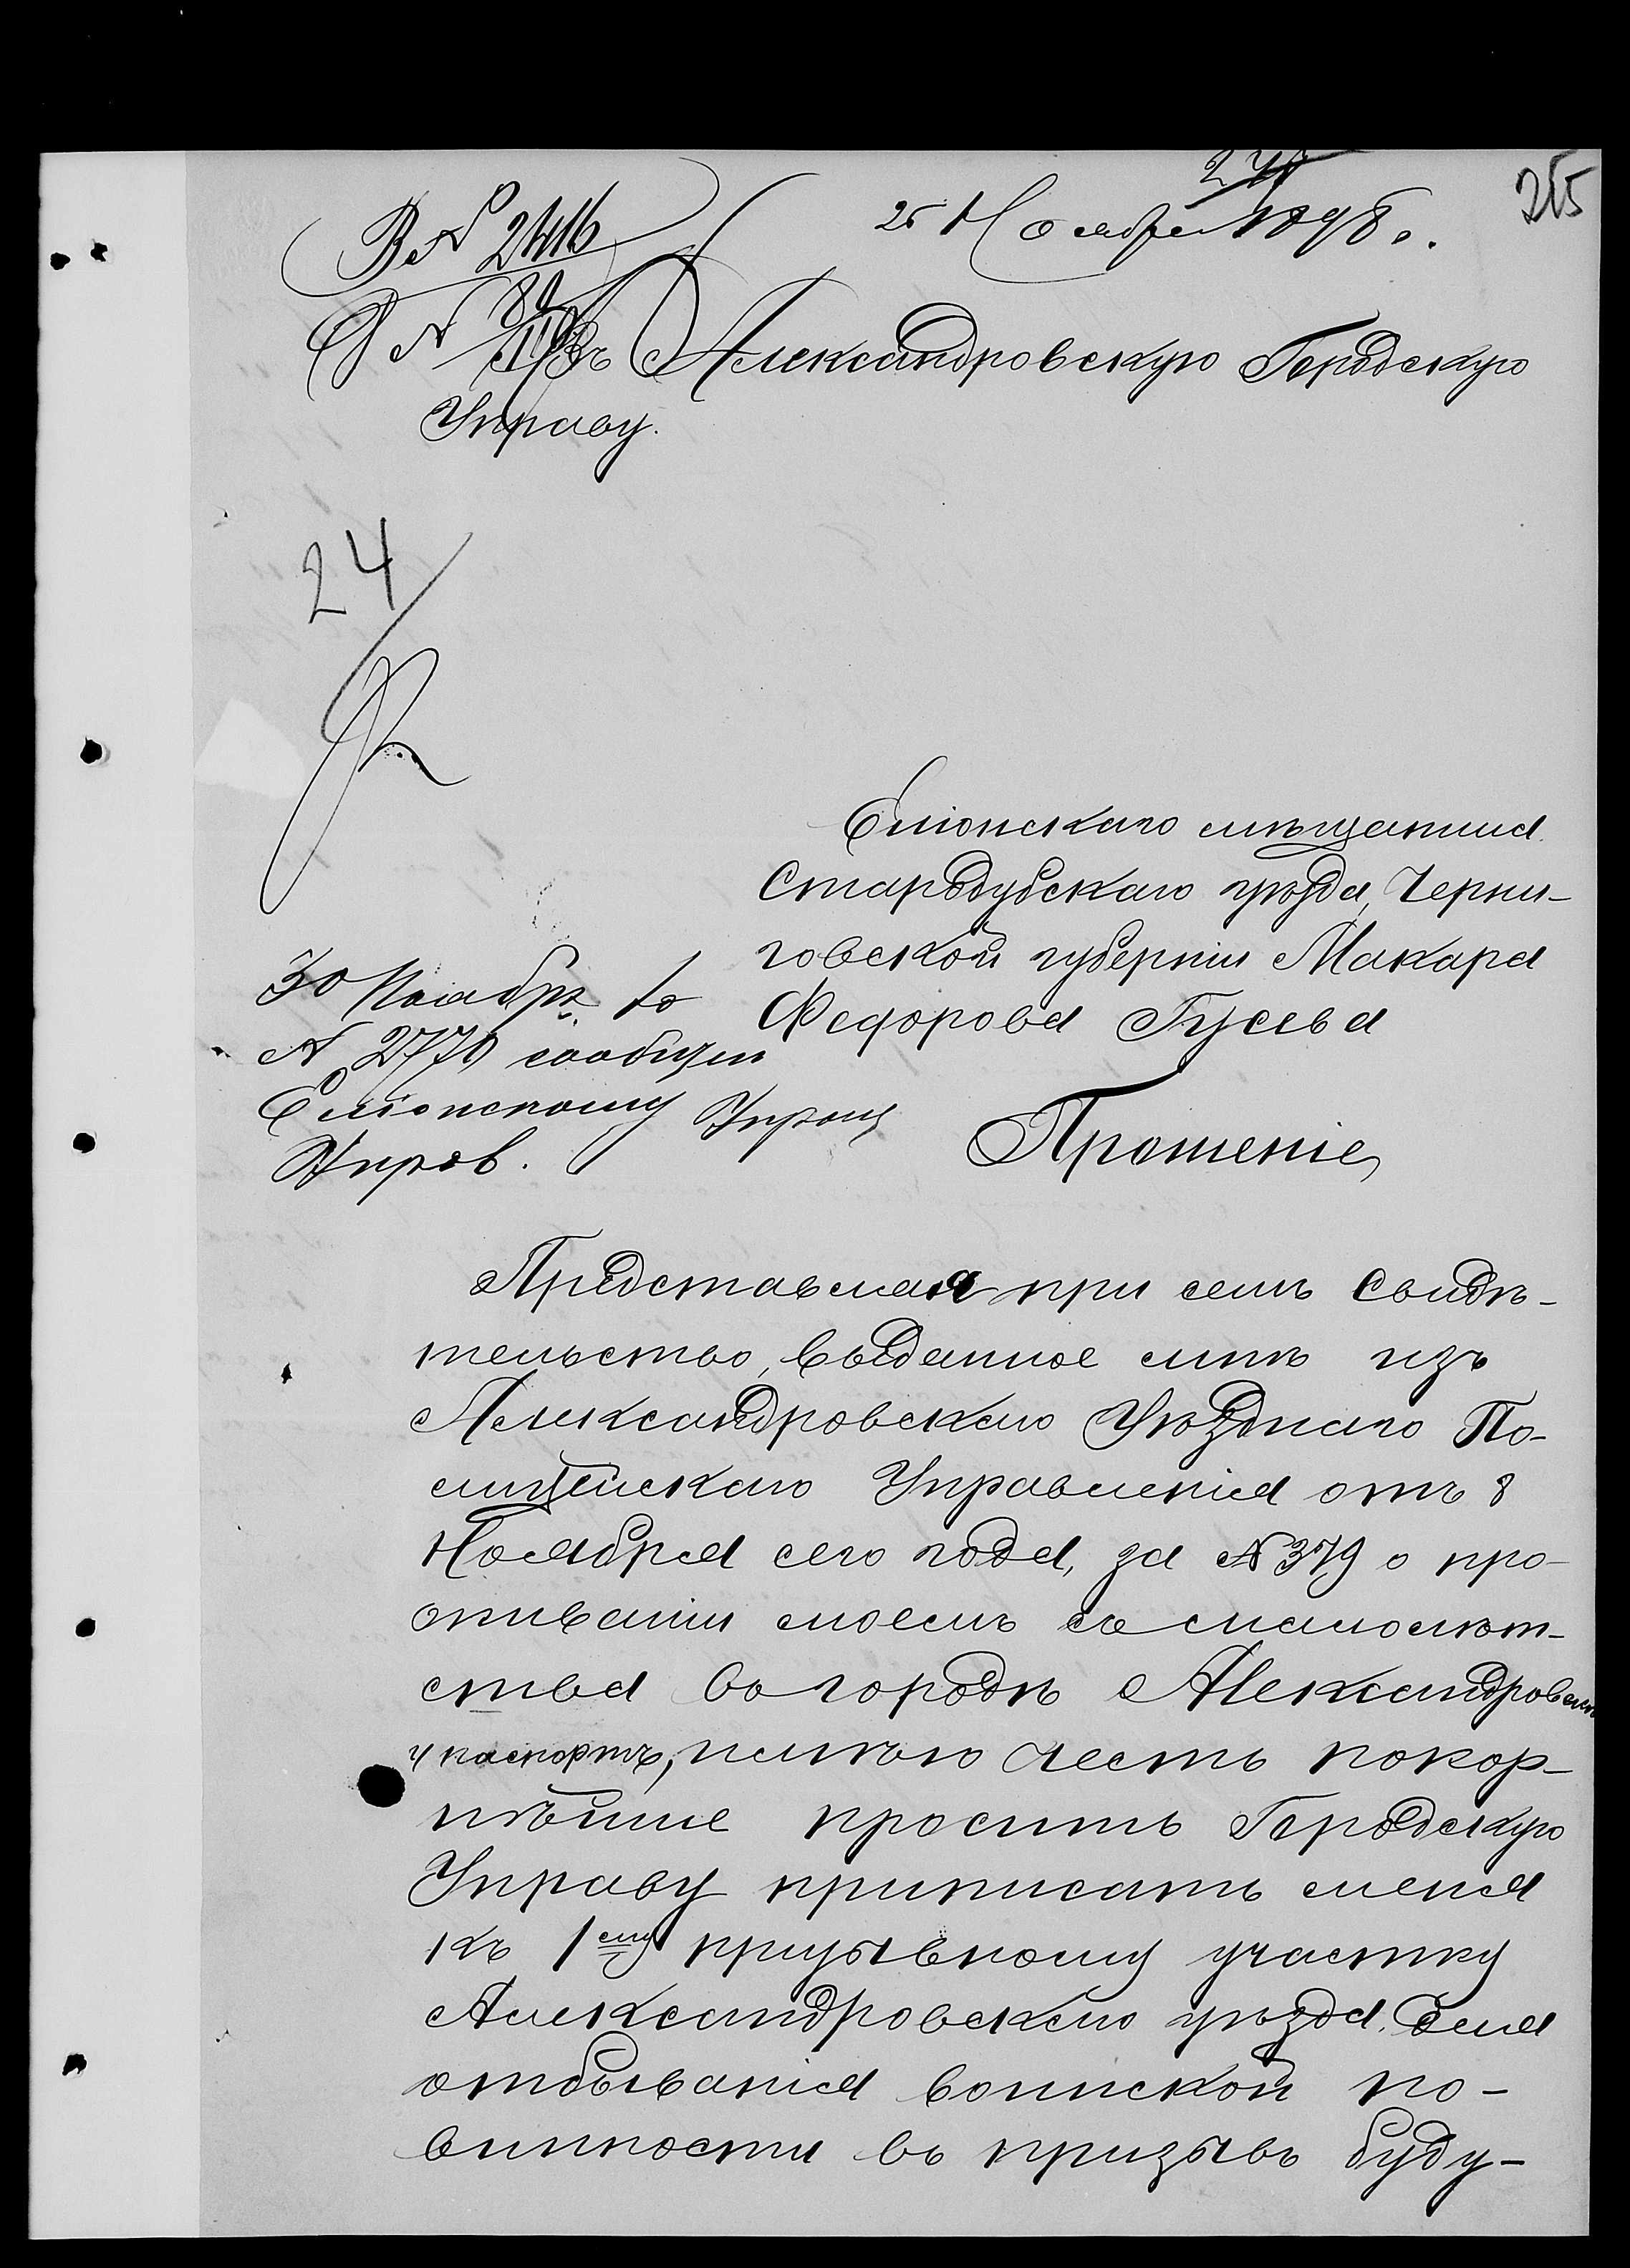 215
25 Ноября 1898 г.
В № 2416
Въ Александровскую Городскую
Управу.
24
Еліонскаго мѣщанина
Стародубскаго уѣзда, Черни-
говской губерніи Макара
Федорова Гусева
30 Ноябр. за
№ 2770 сообщен
Еліонскому Упрощ
Управ.
Прошеніе
Представляя при семъ Свидѣ-
тельство, выданное мнѣ изъ
Александровскаго Уѣзднаго По-
лицейскаго Управленія отъ 8
Ноября сего года, за № 379 о про-
живаніи моемъ съ малолѣт-
ства въ городѣ Александровскѣ
и паспортъ, имѣю честь покор-
нѣйше просить Городскую
Управу приписать меня
къ 1му призывному участку
Александровскаго уѣзда, для
отбыванія воинской по-
винности въ призывъ буду-